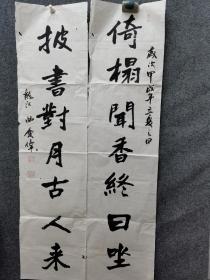 歲次甲戌年立春之日
倚榻聞香終日坐
披書對月古人来